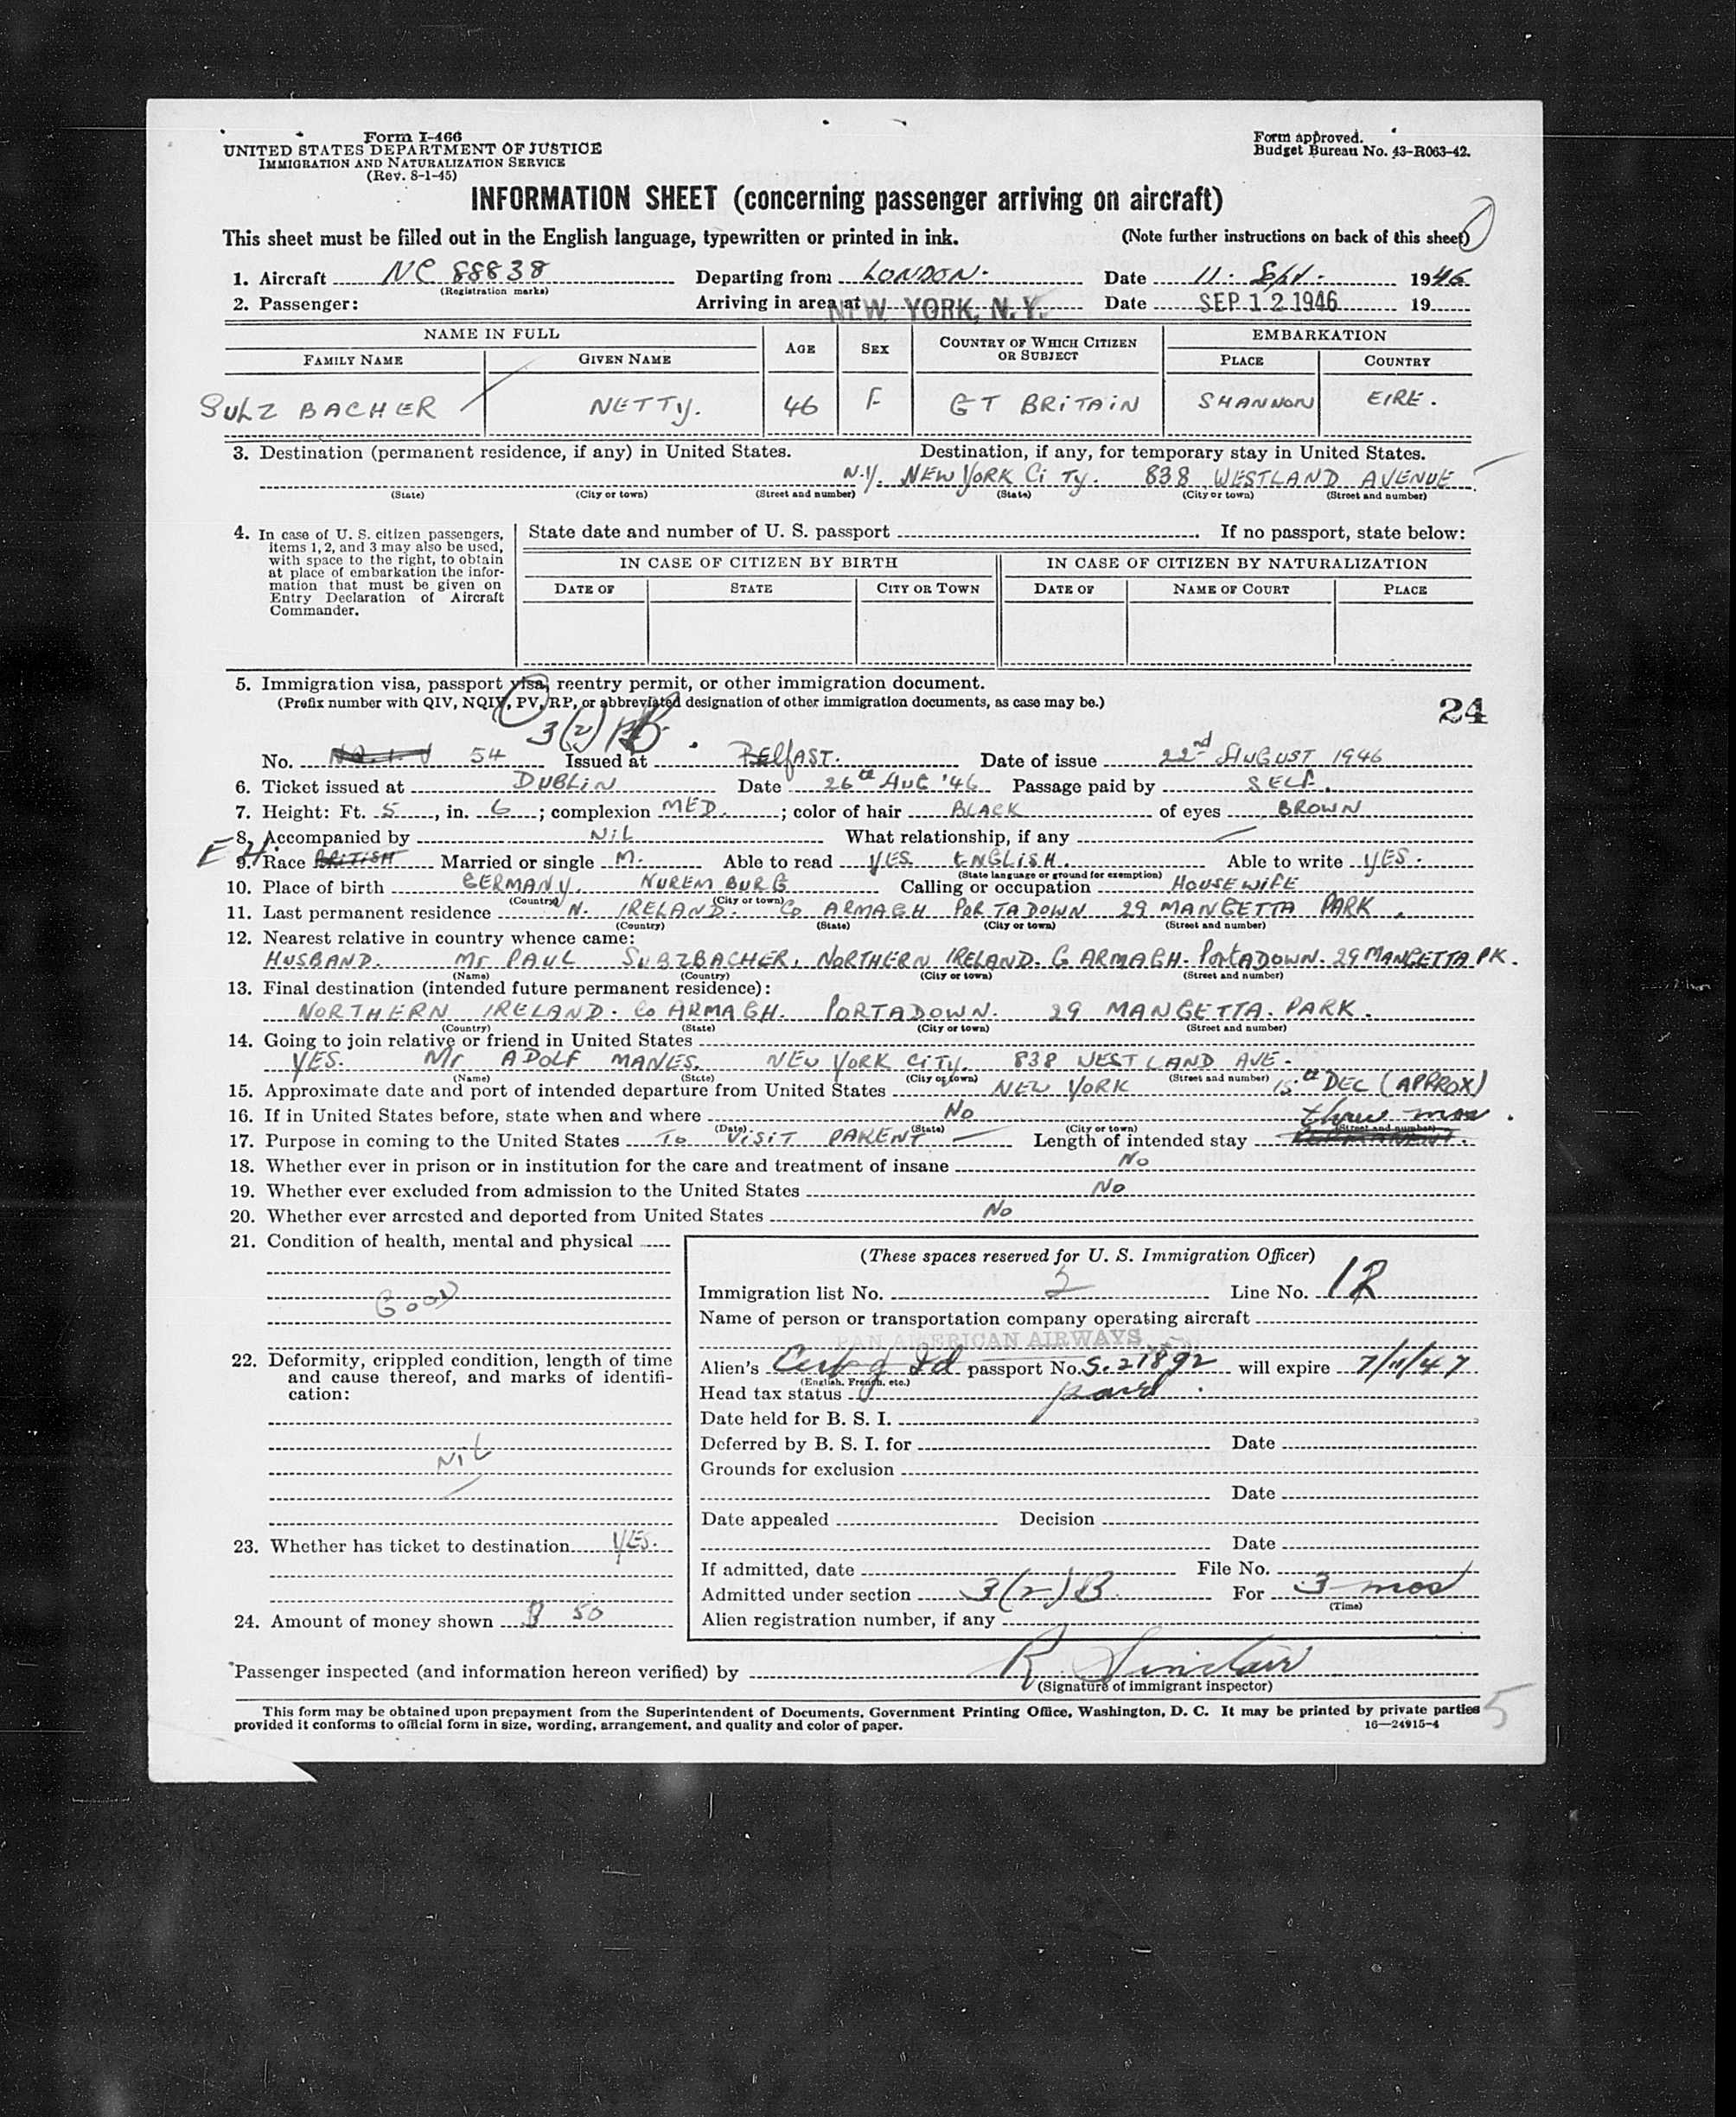 Form I-466
UNITED STATES DEPARTMENT OF JUSTICE
IMMIGRATION AND NATURALIZATION SERVICE
(Rev. 8-1-45)
Form approved.
Budget Bureau No. 43-R063-42.
INFORMATION SHEET (concerning passenger arriving on aircraft)
This sheet must be filled out in the English language, typewritten or printed in ink. (Note further instructions on back of this sheet)
1. Aircraft NC 88838 Departing from LONDON. Date 11. Sept. 1946
(Registration marks)
2. Passenger: Arriving in area at NEW YORK, N.Y. Date SEP 12 1946 19
NAME IN FULL AGE SEX COUNTRY OF WHICH CITIZEN OR SUBJECT EMBARKATION
FAMILY NAME GIVEN NAME PLACE COUNTRY
SULZ BACHER NETTY. 46 F GT BRITAIN SHANNON EIRE.
3. Destination (permanent residence, if any) in United States. Destination, if any, for temporary stay in United States.
N.Y. NEW YORK CiTy. 838 WESTLAND AVENUE
(State) (City or town) (Street and number) (State) (City or town) (Street and number)
4. In case of U. S. citizen passengers, items 1, 2, and 3 may also be used, with space to the right, to obtain at place of embarkation the information that must be given on Entry Declaration of Aircraft Commander.
State date and number of U. S. passport If no passport, state below:
IN CASE OF CITIZEN BY BIRTH IN CASE OF CITIZEN BY NATURALIZATION
DATE OF STATE CITY OR TOWN DATE OF NAME OF COURT PLACE
5. Immigration visa, passport visa, reentry permit, or other immigration document.
(Prefix number with QIV, NQIV, PV, RP, or abbreviated designation of other immigration documents, as case may be.)
24
3(2) B
No. 54 Issued at BElfAST. Date of issue 22nd AUGUST 1946
6. Ticket issued at DUBLIN Date 26th AUG '46 Passage paid by SELF.
7. Height: Ft. 5, in. 6; complexion MED.; color of hair BLACK of eyes BROWN
8. Accompanied by NiL What relationship, if any
9. Race BRITISH Married or single M. Able to read YES ENGLISH. Able to write YES.
(State language or ground for exemption)
10. Place of birth GERMANY. NUREMBURG Calling or occupation HOUSEWIFE
(Country) (City or town)
11. Last permanent residence N. IRELAND. Co ARMAGH PORTADOWN 29 MANGETTA PARK.
(Country) (State) (City or town) (Street and number)
12. Nearest relative in country whence came:
HUSBAND. Mr PAUL SULZBACHER, NORTHERN IRELAND. Co ARMAGH. PORTADOWN. 29 MANGETTA PK.
(Name) (Country) (City or town) (Street and number)
13. Final destination (intended future permanent residence):
NORTHERN IRELAND. Co ARMAGH. PORTADOWN. 29 MANGETTA. PARK.
(Country) (State) (City or town) (Street and number)
14. Going to join relative or friend in United States
YES. Mr ADOLF MANES. NEW YORK CITY. 838 WESTLAND AVE.
(Name) (State) (City or town) (Street and number)
15. Approximate date and port of intended departure from United States NEW YORK 15th DEC (APPROX)
16. If in United States before, state when and where No
(Date) (State) (City or town) (Street and number)
three mos.
17. Purpose in coming to the United States To VISIT PARENT Length of intended stay PERMANENT.
18. Whether ever in prison or in institution for the care and treatment of insane No
19. Whether ever excluded from admission to the United States No
20. Whether ever arrested and deported from United States No
21. Condition of health, mental and physical
GOOD
22. Deformity, crippled condition, length of time and cause thereof, and marks of identification:
NiL
23. Whether has ticket to destination YES.
24. Amount of money shown $ 50
(These spaces reserved for U. S. Immigration Officer)
Immigration list No. 5 Line No. 12
Name of person or transportation company operating aircraft
PAN AMERICAN AIRWAYS
Alien's Cert of Id passport No. S.21892 will expire 7/11/47
(English, French, etc.)
Head tax status paid
Date held for B. S. I.
Deferred by B. S. I. for Date
Grounds for exclusion
Date
Date appealed Decision
Date
If admitted, date File No.
Admitted under section 3(2)B. For 3 mos
(Time)
Alien registration number, if any
Passenger inspected (and information hereon verified) by R Sinclair
(Signature of immigrant inspector)
This form may be obtained upon prepayment from the Superintendent of Documents, Government Printing Office, Washington, D. C. It may be printed by private parties
provided it conforms to official form in size, wording, arrangement, and quality and color of paper. 16—24915-4
5